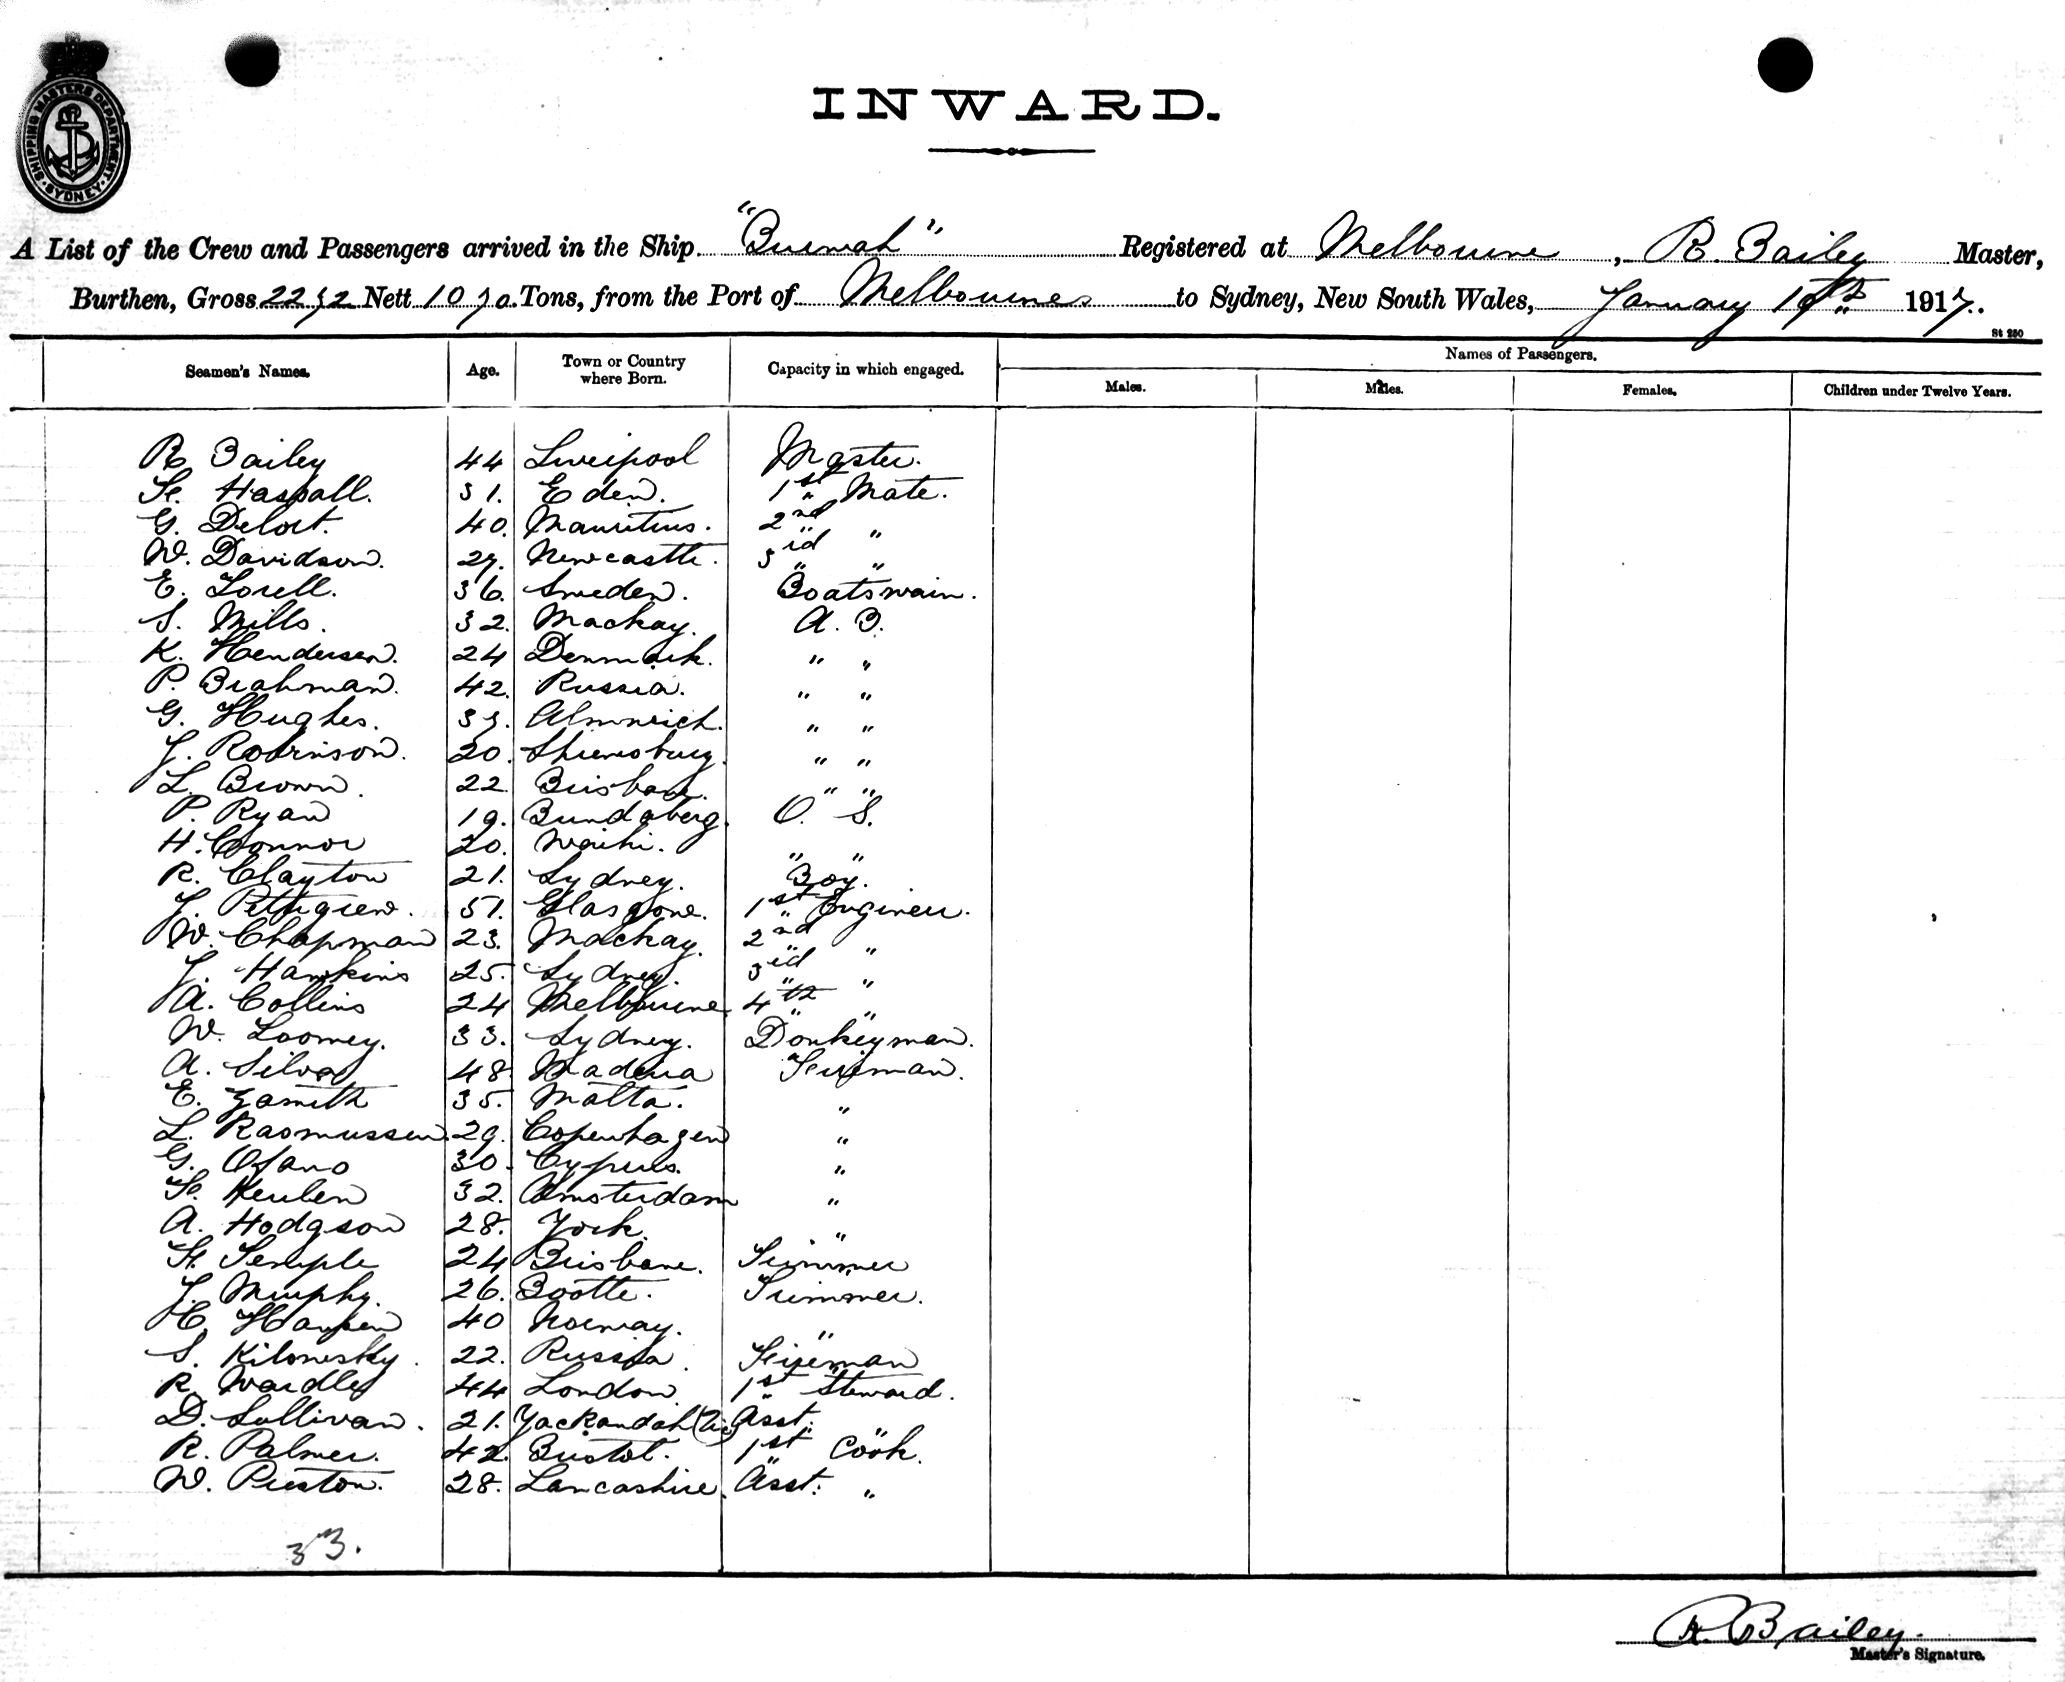 SHIPPING MASTERS DEPARTMENT
SYDNEY
INWARD.
A List of the Crew and Passengers arrived in the Ship "Burwah" Registered at Melbourne, R. Bailey Master,
Burthen, Gross Nett Tons, from the Port of Melbourne to Sydney, New South Wales, January 1917.
St 250
Seamen's Names. Age. Town or Country where Born. Capacity in which engaged. Names of Passengers.
Males. Males. Females. Children under Twelve Years.
R Bailey 44 Liverpool Master.
Haspall. 31. Eden. 1st Mate.
G. Delort. 40. Mauritius. 2nd "
W. Davidson. Newcastle. 3rd "
E. Lorell. 36. Sweden. Boatswain.
S. Mills. 32. Mackay. A. B.
K. Hendersen. 24 Denmark. " "
P. Brahman. 42. Russia. " "
G. Hughes. Almwich. " "
J. Robinson. 20. Shrewsbury. " "
L. Brown. 22 Brisbane. " "
P. Ryan 19. Bundaberg. O. S.
H. Connor 20. Waihi. " "
R. Clayton 21. Sydney. Boy.
J. Pettigrew. 51. Glasgow. 1st Engineer.
W. Chapman 23. Mackay. 2nd "
J. Hawkins 25. Sydney. 3rd "
A. Collins 24 Melbourne 4th "
W. Loomey. 33. Sydney. Donkeyman.
A. Silva 48. Madeira Fireman.
E. Zamith 35. Malta. "
L. Rasmussen. 29. Copenhagen "
G. Ofano 30. Cyprus. "
Keulen 32. Amsterdam "
A. Hodgson 28. York. "
Semple 24 Brisbane. Trimmer
J. Murphy. 26. Bootle. Trimmer.
C. Hansen 40 Norway. "
S. Kilonesky. 22. Russia. Fireman
R. Wardle 44 London. 1st Steward.
D. Sullivan. 21. Yackandah (Vic) Asst. "
R. Palmer. 42. Bristol. 1st Cook.
W. Preston. 28. Lancashire. Asst. "
33.
R. Bailey.
Master's Signature.